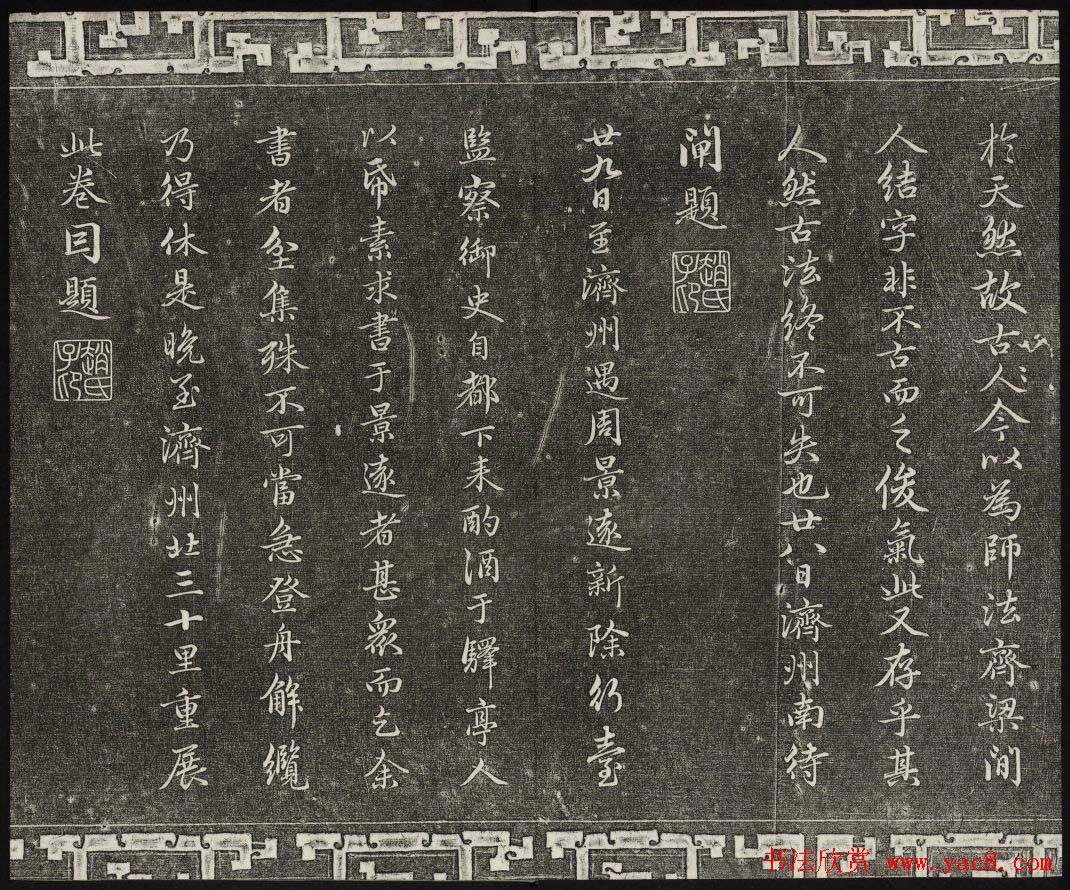 於天然故古人今以為師法齊梁間
人結字非不古而乏俊氣此又存乎其
人然古法終不可失也廿八日濟州南待
閘題
趙氏子昂
廿九日至濟州遇周景遠新除行臺
監察御史自都下来酌酒于驛亭人
以帋素求書于景遠者甚衆而乞余
書者坌集殊不可當急登舟解纜
乃得休是晚至濟州北三十里重展
此卷因題
趙氏子昂
书法欣赏 www.yac8.com